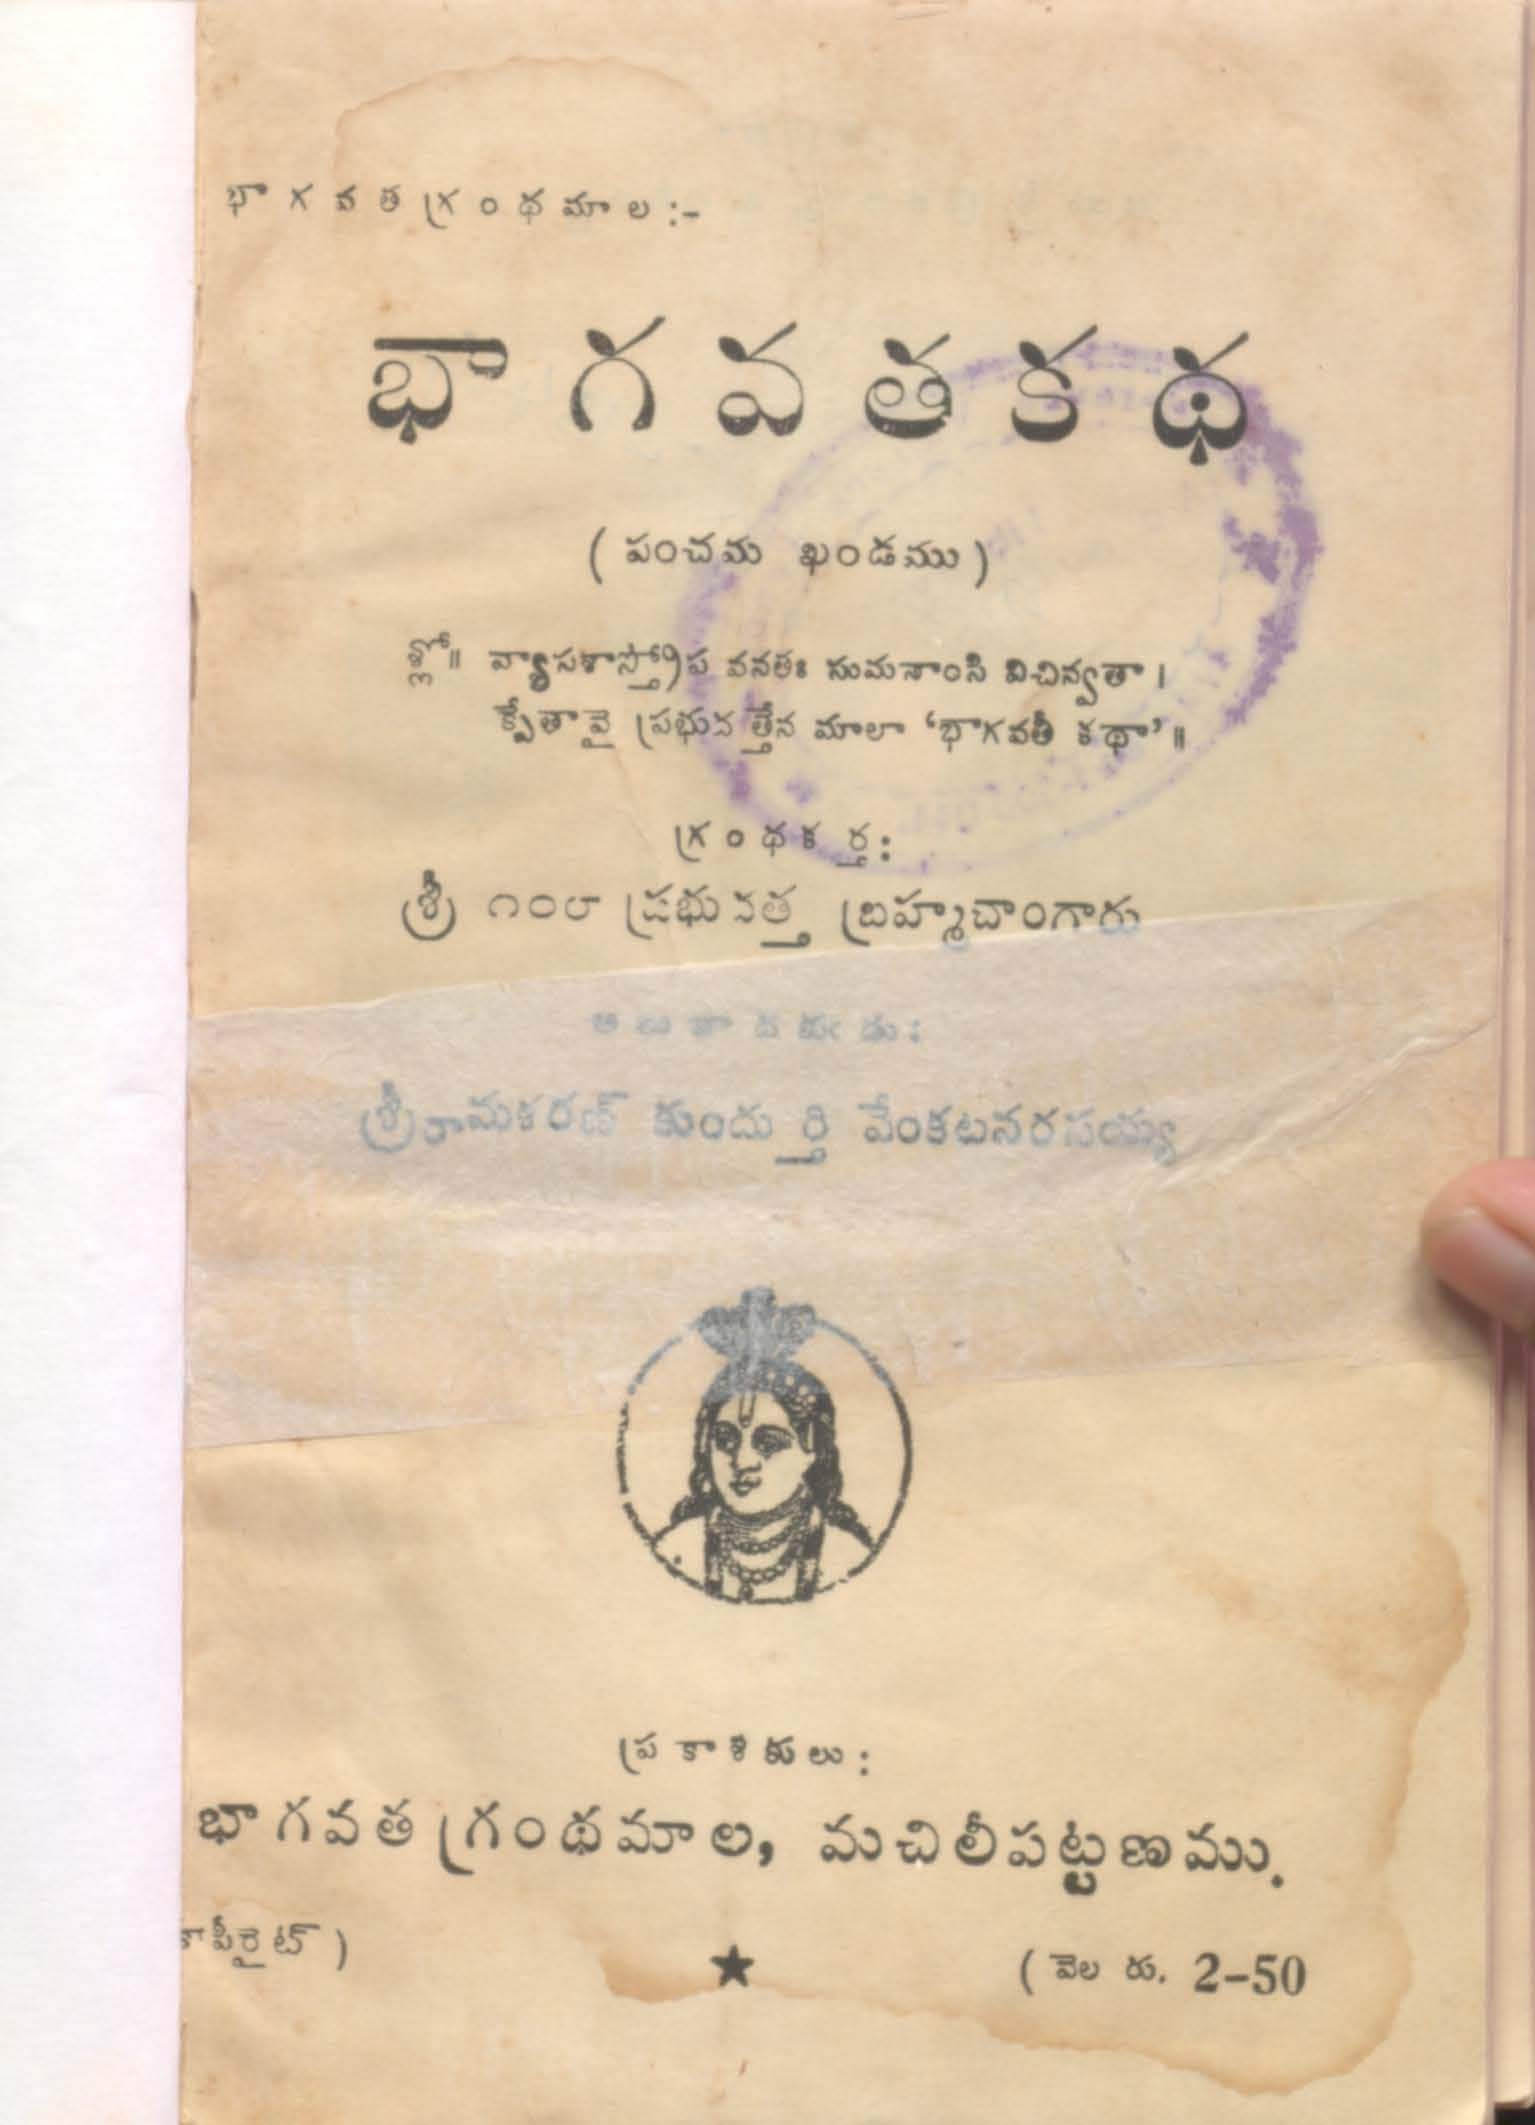 భాగవతగ్రంథమాల:-
భాగవతకథ
( పంచమ ఖండము )
శ్లో॥ వ్యాసశాస్త్రోప వనతః సుమనాంసి విచిన్వతా ।
కృతావై ప్రభుదత్తేన మాలా ‘భాగవతీ కథా’ ॥
గ్రంథకర్త:
శ్రీ ౧౦౮ ప్రభుదత్త బ్రహ్మచారిగారు
అనువాదకుఁడు:
శ్రీరామశరణ్ కుందుర్తి వేంకటనరసయ్య
ప్రకాశకులు:
భాగవత గ్రంథమాల, మచిలీపట్టణము.
కాపీరైట్ )
( వెల రు. 2-50